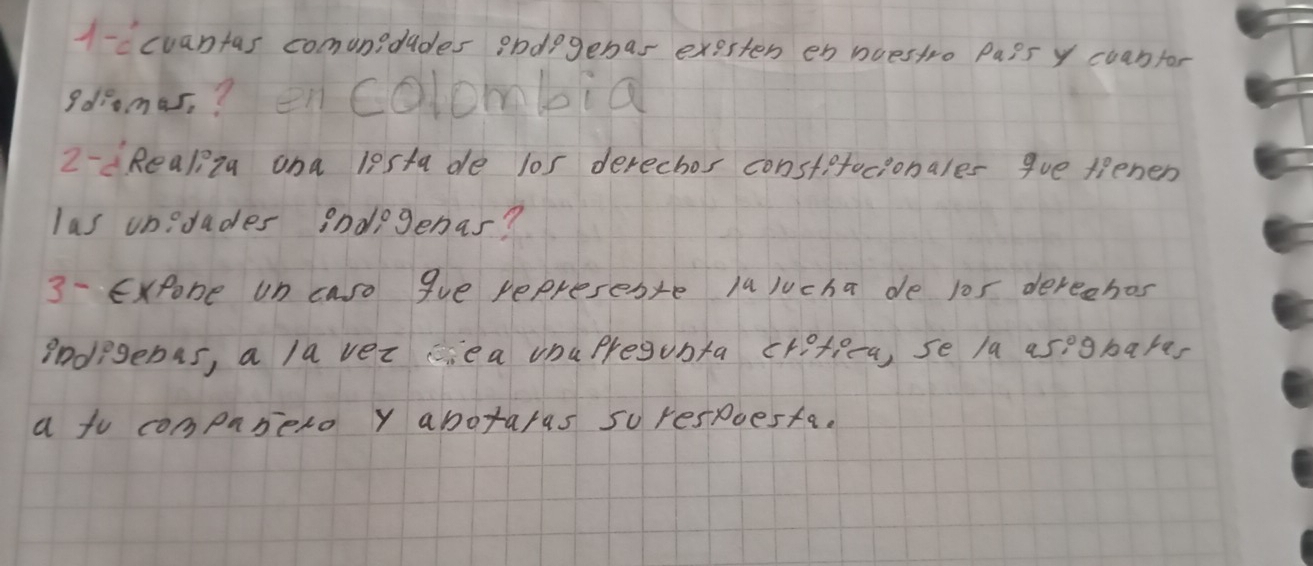 1-¿cuantas comunidades indigenas existen en nuestro Pais y cuantos
idiomas.? en colombia
2-¿Realiza una lista de los derechos constitucionales que tienen
las unidades indigenas?
3- Expone un caso que represente la lucha de los derechos
indigenas, a la vez crea una Pregunta critica, se la asignaras
a tu compañero y anotaras su respuesta.